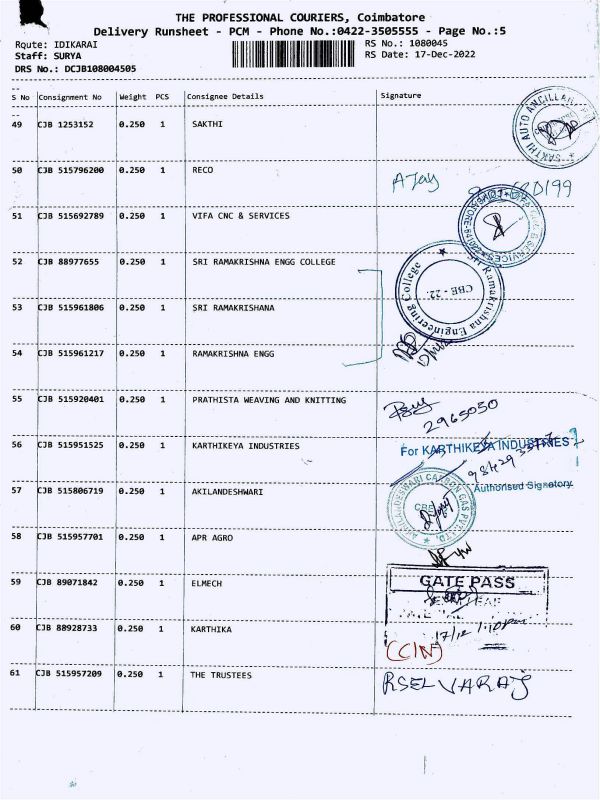 THE PROFESSIONAL COURIERS, Coimbatore
Delivery Runsheet - PCM - Phone No.:0422-3505555 - Page No.:5
Route: IDIKARAI
RS No.: 1080045
Staff: SURYA
RS Date: 17-Dec-2022
DRS No.: DCJB108004505
S No Consignment No Weight PCS Consignee Details Signature
49 CJB 1253152 0.250 1 SAKTHI
SAKTHI AUTO ANCILLARY
50 CJB 515796200 0.250 1 RECO
AJay
51 CJB 515692789 0.250 1 VIFA CNC & SERVICES
52 CJB 88977655 0.250 1 SRI RAMAKRISHNA ENGG COLLEGE
Ramakrishna Engineering College
CBE - 22
53 CJB 515961806 0.250 1 SRI RAMAKRISHANA
54 CJB 515961217 0.250 1 RAMAKRISHNA ENGG
55 CJB 515920401 0.250 1 PRATHISTA WEAVING AND KNITTING
2965050
56 CJB 515951525 0.250 1 KARTHIKEYA INDUSTRIES
For KARTHIKEYA INDUSTRIES
Authorised Signatory
57 CJB 515806719 0.250 1 AKILANDESHWARI
AKHILANDESHWARI CARBON GAS PVT. LTD.
58 CJB 515957701 0.250 1 APR AGRO
59 CJB 89071842 0.250 1 ELMECH
GATE PASS
60 CJB 88928733 0.250 1 KARTHIKA
17/12 1:10pm
(CIN)
61 CJB 515957209 0.250 1 THE TRUSTEES
RSELVARAJ